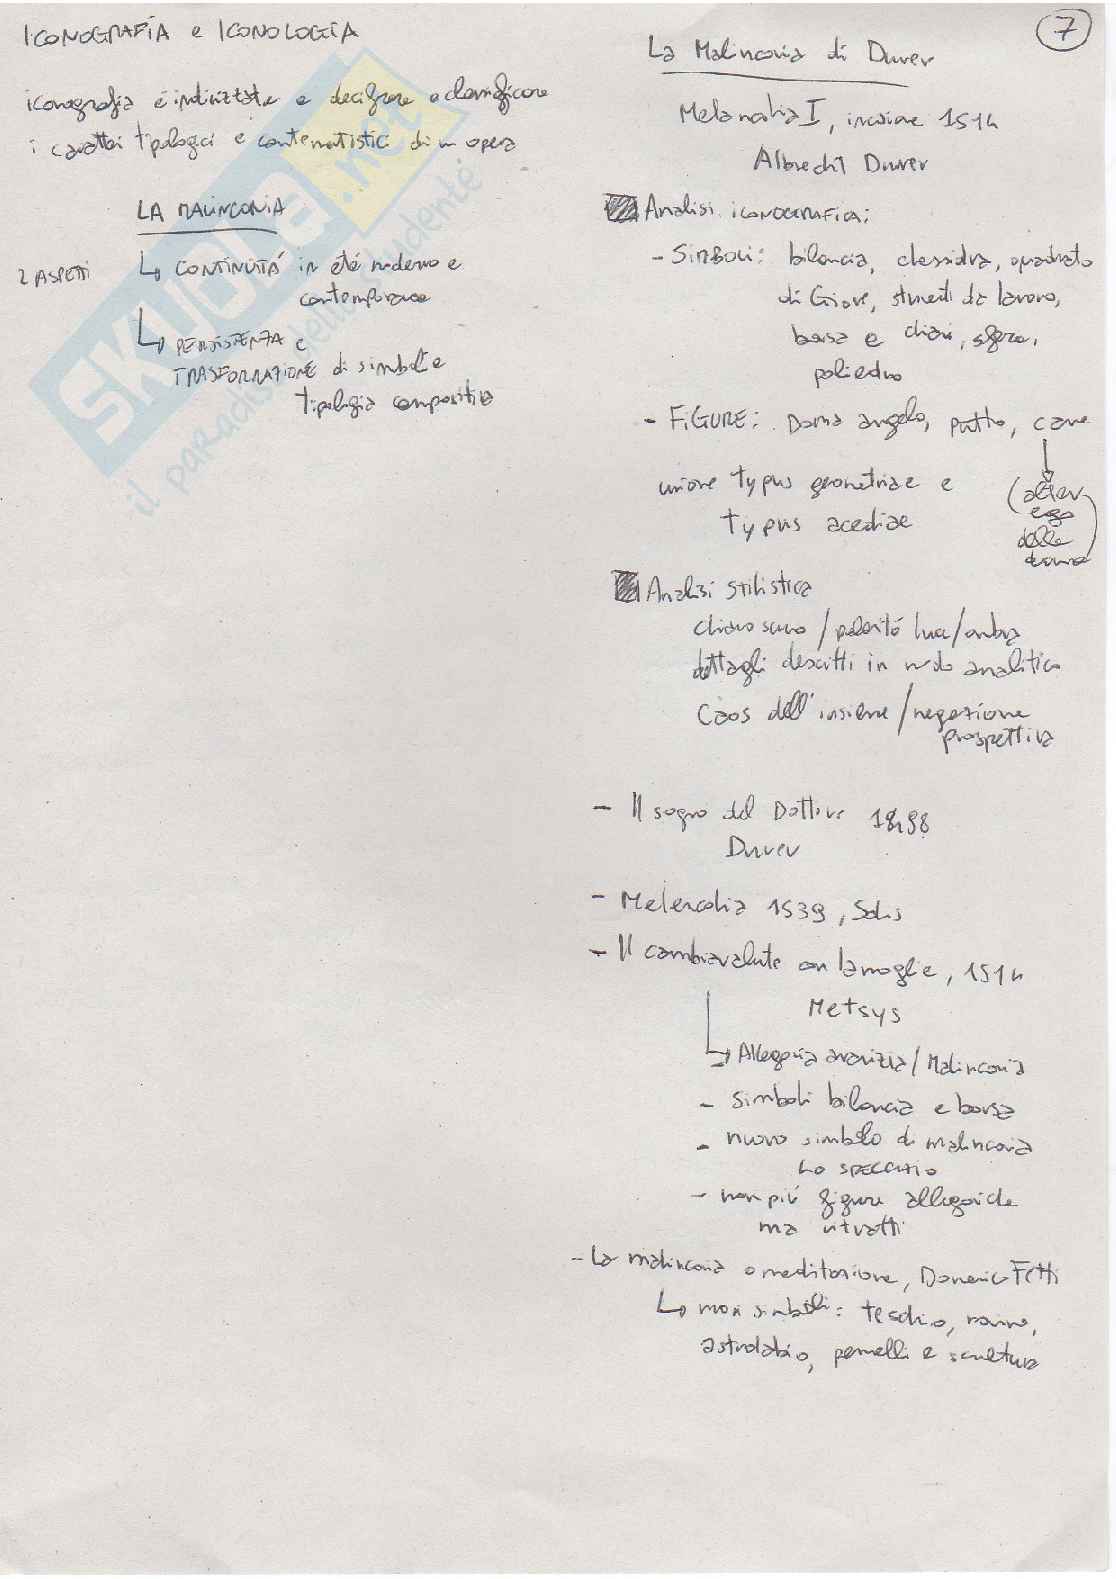 ICONOGRAFIA e ICONOLOGIA
iconografia è indirizzata a decifrare e classificare
i caratteri tipologici e contenutistici di un opera
LA MALINCONIA
2 ASPETTI
↳ CONTINUITÁ in etá moderna e
contemporanea
↳ PERSISTENZA e
TRASFORMAZIONE di simboli e
tipologia compositiva
SKUOLA.net
il paradiso dello studente
7
La Malinconia di Durer
Melancolia I, incisione 1514
Albrecht Durer
Analisi iconografica:
- SIMBOLI: bilancia, clessidra, quadrato
di Giove, strumenti da lavoro,
borsa e chiavi, sfera,
poliedro
- FIGURE: Donna angelo, putto, cane
(alter
ego
della
donna)
unione typus geometriae e
typus acediae
Analisi stilistica
chiaro scuro / polarità luce/ombra
dettagli descritti in modo analitico
Caos dell'insieme / negazione
prospettiva
- Il sogno del Dottore 1498
Durer
- Melencolia 1539, Solis
- Il cambiavalute con la moglie, 1514
Metsys
↳ Allegoria avarizia / Malinconia
- simboli bilancia e borsa
- nuovo simbolo di malinconia
LO SPECCHIO
- non piú figure allegoriche
ma ritratti
- La malinconia o meditazione, Domenico Fetti
↳ nuovi simboli: teschio,
astrolabio, pennelli e scultura